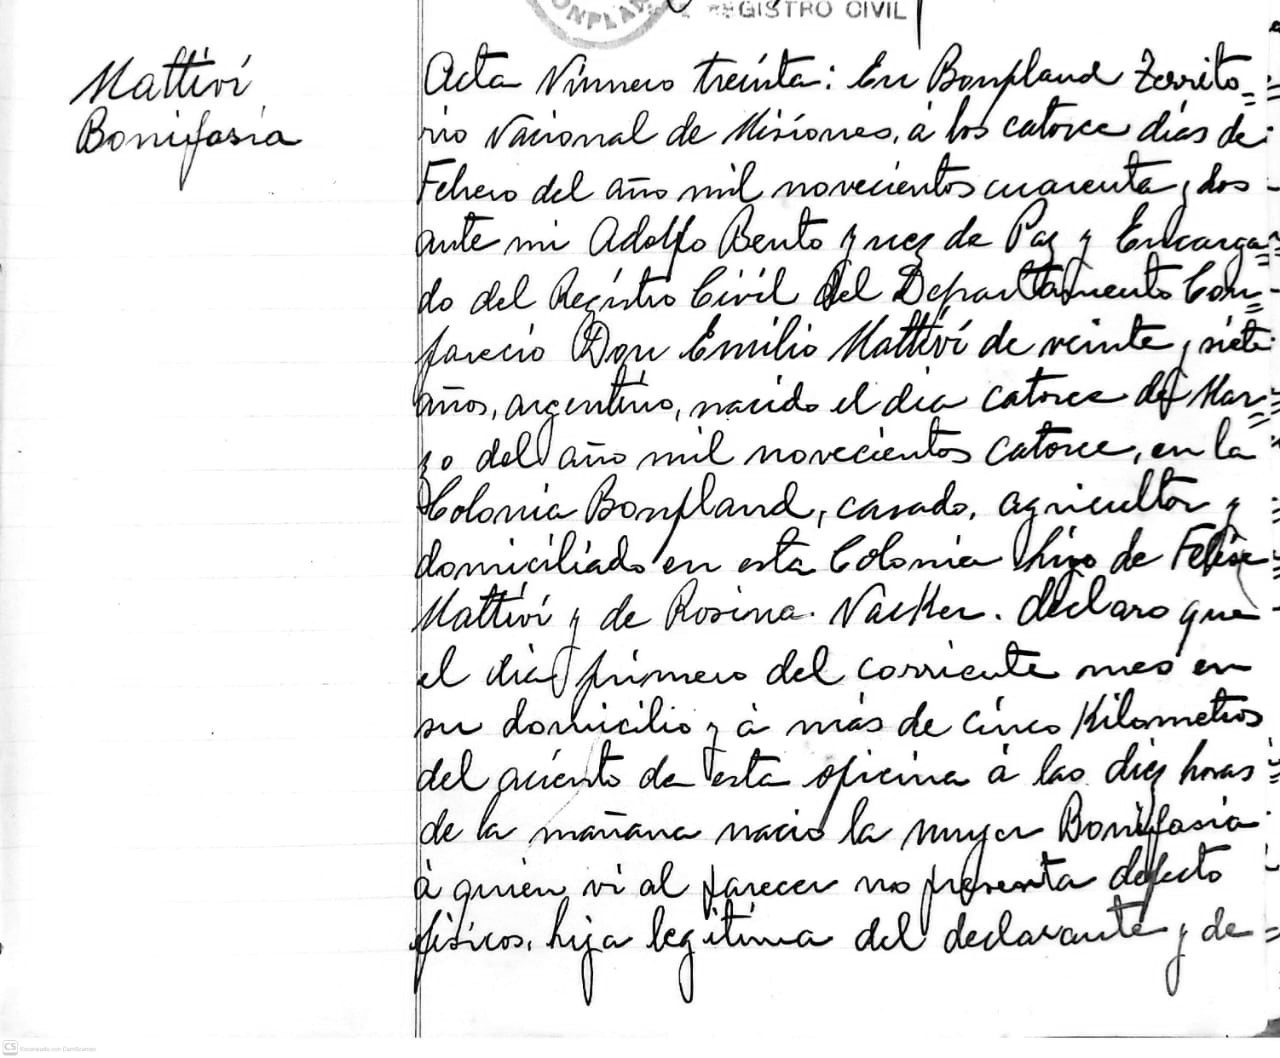 REGISTRO CIVIL
Mattivi
Bonifasia
Acta Número treinta: En Bonpland Territo=
rio Nacional de Misiones, á los catorce dias de
Febrero del año mil novecientos cuarenta y dos
ante mi Adolfo Bento Juez de Paz y Encarga=
do del Registro Civil del Departamento Com=
parecio Don Emilio Mattivi de veinte y siete
años, argentino, nacido el dia catorce de Mar=
zo del año mil novecientos catorce, en la
Colonia Bonpland, casado, agricultor y
domiciliado en esta Colonia hijo de Felise
Mattivi y de Rosina Vacker. declaro que
el dia primero del corriente mes en
su domicilio y á más de cinco Kilometros
del aciento de esta oficina á las diez horas
de la mañana nacio la mujer Bonifasia
á quien vi al parecer no presenta defecto
fisicos, hija legítima del declarante y de
CS Escaneado con CamScanner